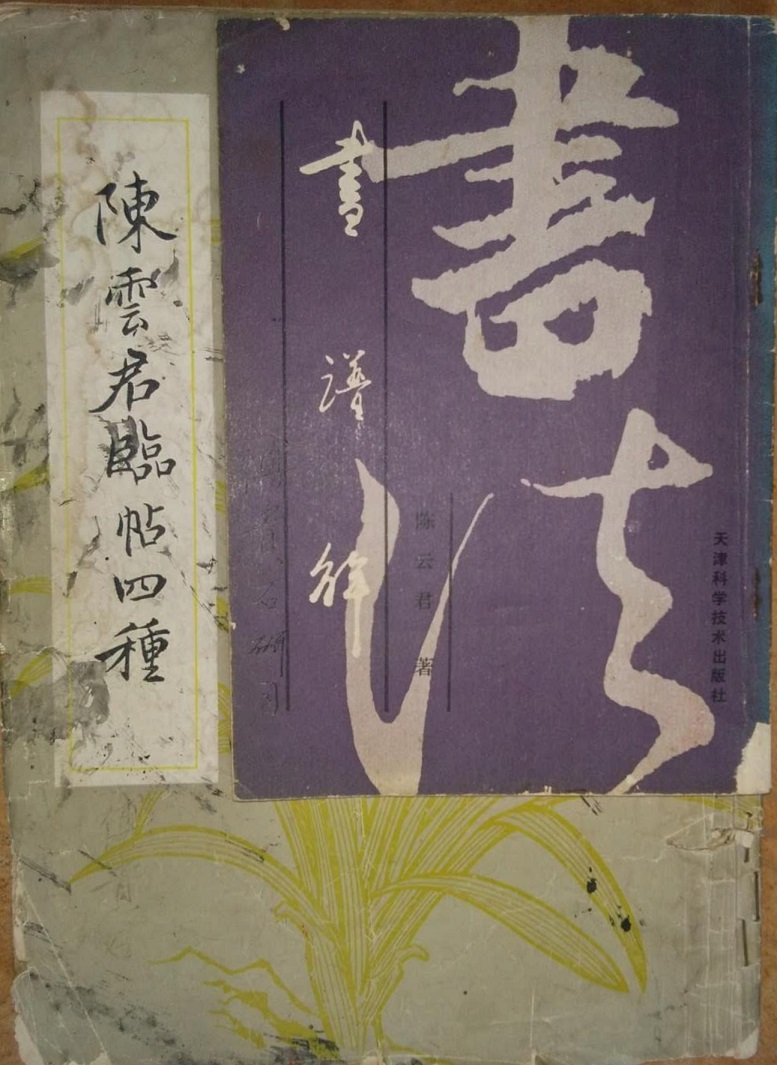 陳雲君臨帖四種
書法
書譜解
陈云君 著
天津科学技术出版社